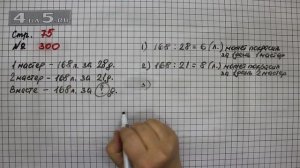 4 на 5.ru
Стр. 75
№ 300
1 мастер - 168 л. за 28 д.
2 мастер - 168 л. за 21 д.
Вместе - 168 л. за ? д.
1) 168 : 28 = 6 (л.) может
за 1 день 1 мастер
2) 168 : 21 = 8 (л.) может
за 1 день 2 мастер
3)